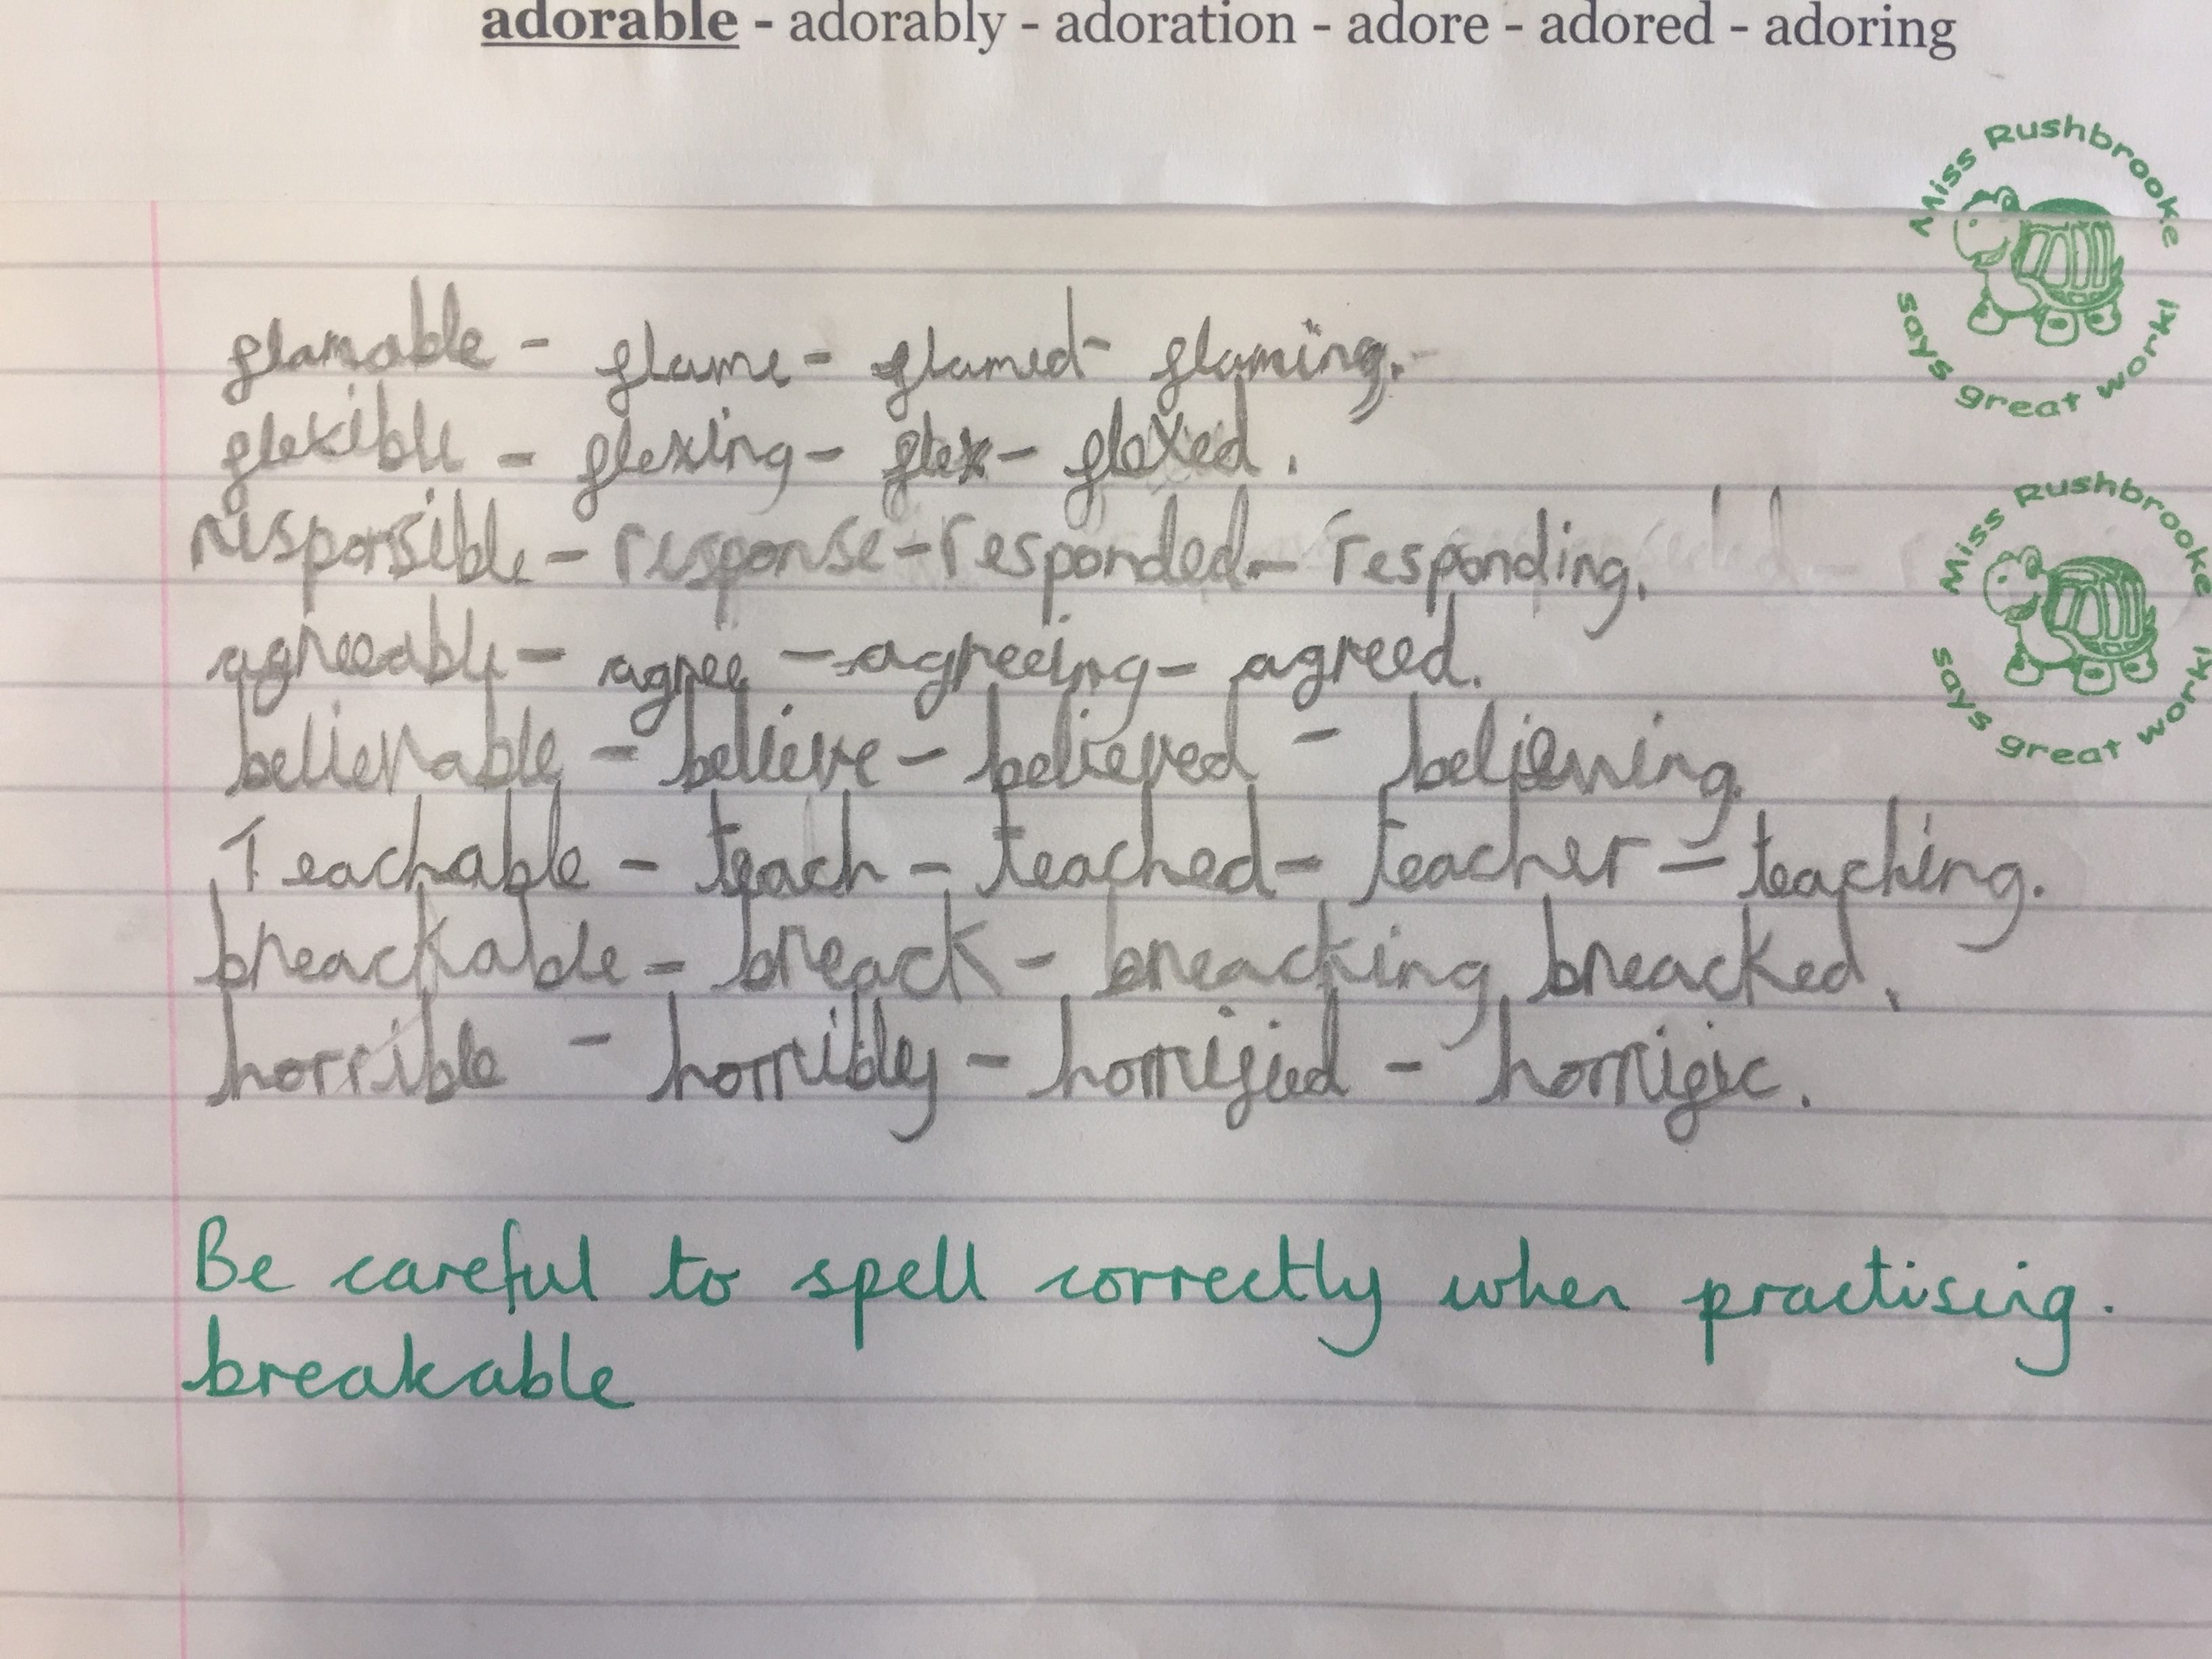 adorable - adorably - adoration - adore - adored - adoring
Miss Rushbrooke
says great work!
flamable - flame - flamed - flaming.
flexible - flexing - flex - flexed.
responsible - response - responded - responding.
Miss Rushbrooke
says great work!
agreeable - agree - agreeing - agreed.
believable - believe - believed - believing.
Teachable - teach - teached - teacher - teaching.
breackable - breack - breacking breacked.
horrible - horribley - horrified - horrific.
Be careful to spell correctly when practising.
breakable